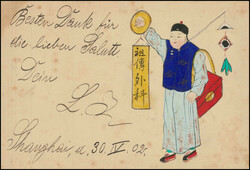 Besten Dank für
die lieben Salutti
Dein
L. Z.
Shanghai, d. 30. IV 02.
祖傳外科